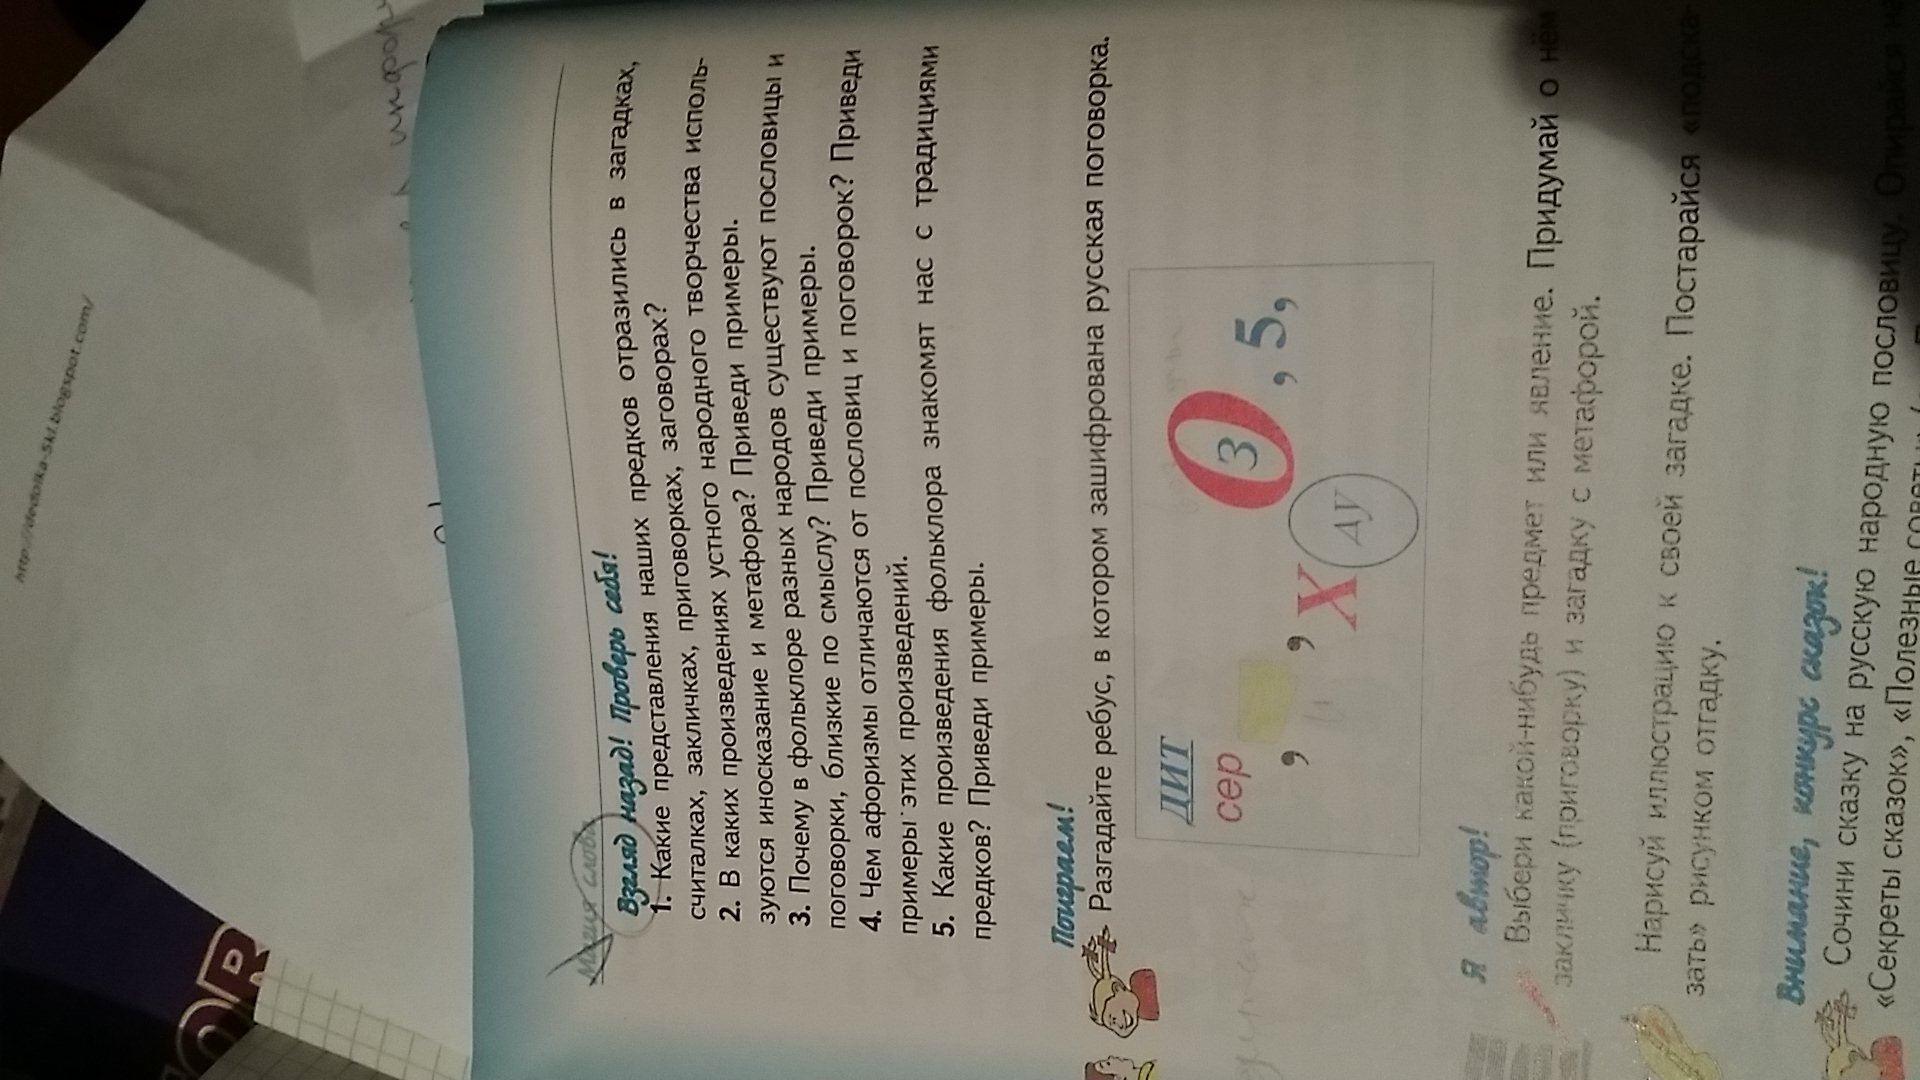 http://dedolka-5kl.blogspot.com/
инфор
Магия слова
Взгляд назад! Проверь себя!
1. Какие представления наших предков отразились в загадках,
считалках, закличках, приговорках, заговорах?
2. В каких произведениях устного народного творчества исполь-
зуются иносказание и метафора? Приведи примеры.
3. Почему в фольклоре разных народов существуют пословицы и
поговорки, близкие по смыслу? Приведи примеры.
4. Чем афоризмы отличаются от пословиц и поговорок? Приведи
примеры этих произведений.
5. Какие произведения фольклора знакомят нас с традициями
предков? Приведи примеры.
Поиграем!
Разгадайте ребус, в котором зашифрована русская поговорка.
ДИТ
сер , , Х ду О 3 , 5,
Я автор!
Выбери какой-нибудь предмет или явление. Придумай о нём
закличку (приговорку) и загадку с метафорой.
Нарисуй иллюстрацию к своей загадке. Постарайся «подска-
зать» рисунком отгадку.
Внимание, конкурс сказок!
Сочини сказку на русскую народную пословицу. Опирайся на
«Секреты сказок», «Полезные советы»